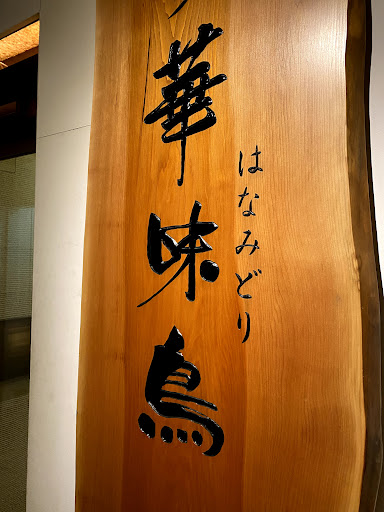 華味鳥
はなみどり